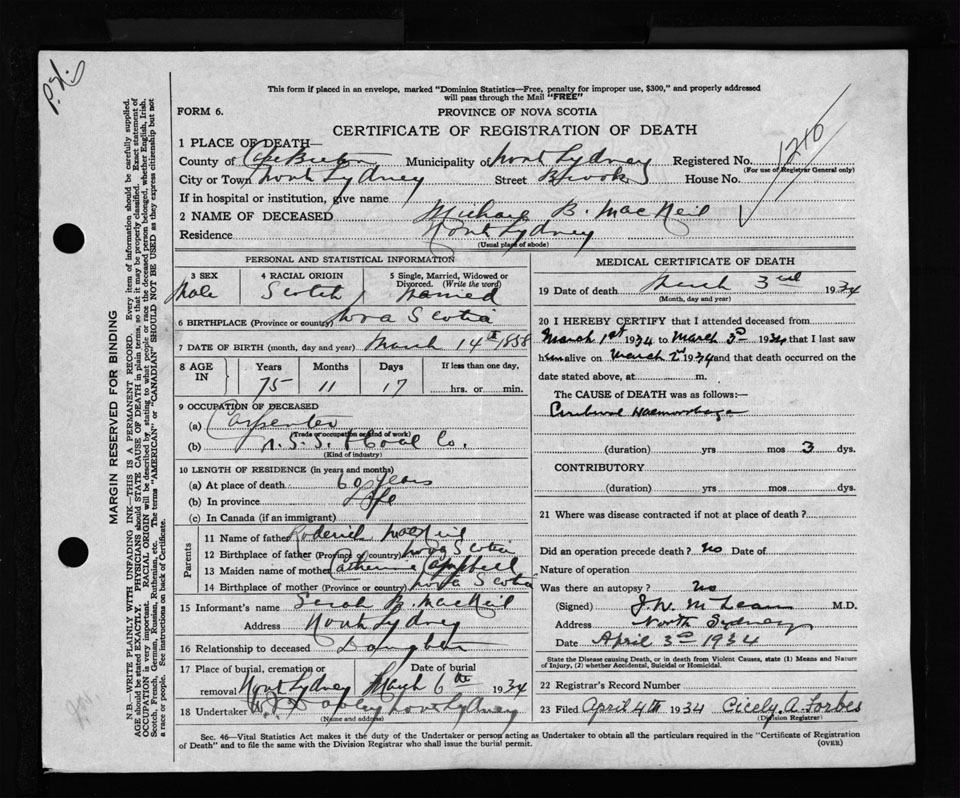 This form if placed in an envelope, marked "Dominion Statistics—Free, penalty for improper use, $300," and properly addressed
will pass through the Mail "FREE"
FORM 6.
PROVINCE OF NOVA SCOTIA
CERTIFICATE OF REGISTRATION OF DEATH
1 PLACE OF DEATH—
County of Cape Breton Municipality of North Sydney Registered No. 1210
(For use of Registrar General only)
City or Town North Sydney Street Brook House No.
If in hospital or institution, give name
2 NAME OF DECEASED Michael B. MacNeil
Residence North Sydney
(Usual place of abode)
PERSONAL AND STATISTICAL INFORMATION
3 SEX 4 RACIAL ORIGIN 5 Single, Married, Widowed or Divorced. (Write the word)
Male Scotch Married
6 BIRTHPLACE (Province or country) Nova Scotia
7 DATE OF BIRTH (month, day and year) March 14th 1858
8 AGE IN Years Months Days If less than one day.
75 11 17 hrs. or min.
9 OCCUPATION OF DECEASED
(a) Carpenter
(Trade or occupation or kind of work)
(b) N.S.S. & Coal Co.
(Kind of industry)
10 LENGTH OF RESIDENCE (in years and months)
(a) At place of death 60 years
(b) In province Life
(c) In Canada (if an immigrant)
Parents
11 Name of father Roderick MacNeil
12 Birthplace of father (Province or country) Nova Scotia
13 Maiden name of mother Catherine Campbell
14 Birthplace of mother (Province or country) Nova Scotia
15 Informant's name Sarah B. MacNeil
Address North Sydney
16 Relationship to deceased Daughter
17 Place of burial, cremation or Date of burial
removal North Sydney March 6th 1934
18 Undertaker North Sydney
(Name and address)
MEDICAL CERTIFICATE OF DEATH
19 Date of death March 3rd 1934
(Month, day and year)
20 I HEREBY CERTIFY that I attended deceased from
March 1st 1934 to March 3rd 1934 that I last saw
him alive on March 2d 1934 and that death occurred on the
date stated above, at m.
The CAUSE of DEATH was as follows:—
Cerebral Haemorrhage
(duration) yrs mos 3 dys.
CONTRIBUTORY
(duration) yrs mos dys.
21 Where was disease contracted if not at place of death?
Did an operation precede death? no Date of
Nature of operation
Was there an autopsy? no
(Signed) J.W. McLean M.D.
Address North Sydney
Date April 3rd 1934
State the Disease causing Death, or in death from Violent Causes, state (1) Means and Nature
of Injury, (2) whether Accidental, Suicidal or Homicidal.
22 Registrar's Record Number
23 Filed April 4th 1934 Cicely. A. Forbes
(Division Registrar)
Sec. 46—Vital Statistics Act makes it the duty of the Undertaker or person acting as Undertaker to obtain all the particulars required in the "Certificate of Registration
of Death" and to file the same with the Division Registrar who shall issue the burial permit.
(OVER)
MARGIN RESERVED FOR BINDING
N.B.—WRITE PLAINLY WITH UNFADING INK—THIS IS A PERMANENT RECORD. Every item of information should be carefully supplied.
AGE should be stated EXACTLY. PHYSICIANS should STATE CAUSE OF DEATH in plain terms, so that it may be properly classified. Exact statement of
OCCUPATION is very important. RACIAL ORIGIN will be described by stating to what people or race the deceased person belonged, whether English, Irish,
Scotch, French, German, Russian, Ruthenian, etc. The terms "AMERICAN" or "CANADIAN" SHOULD NOT BE USED as they express citizenship but not
a race or people. See instructions on back of Certificate.